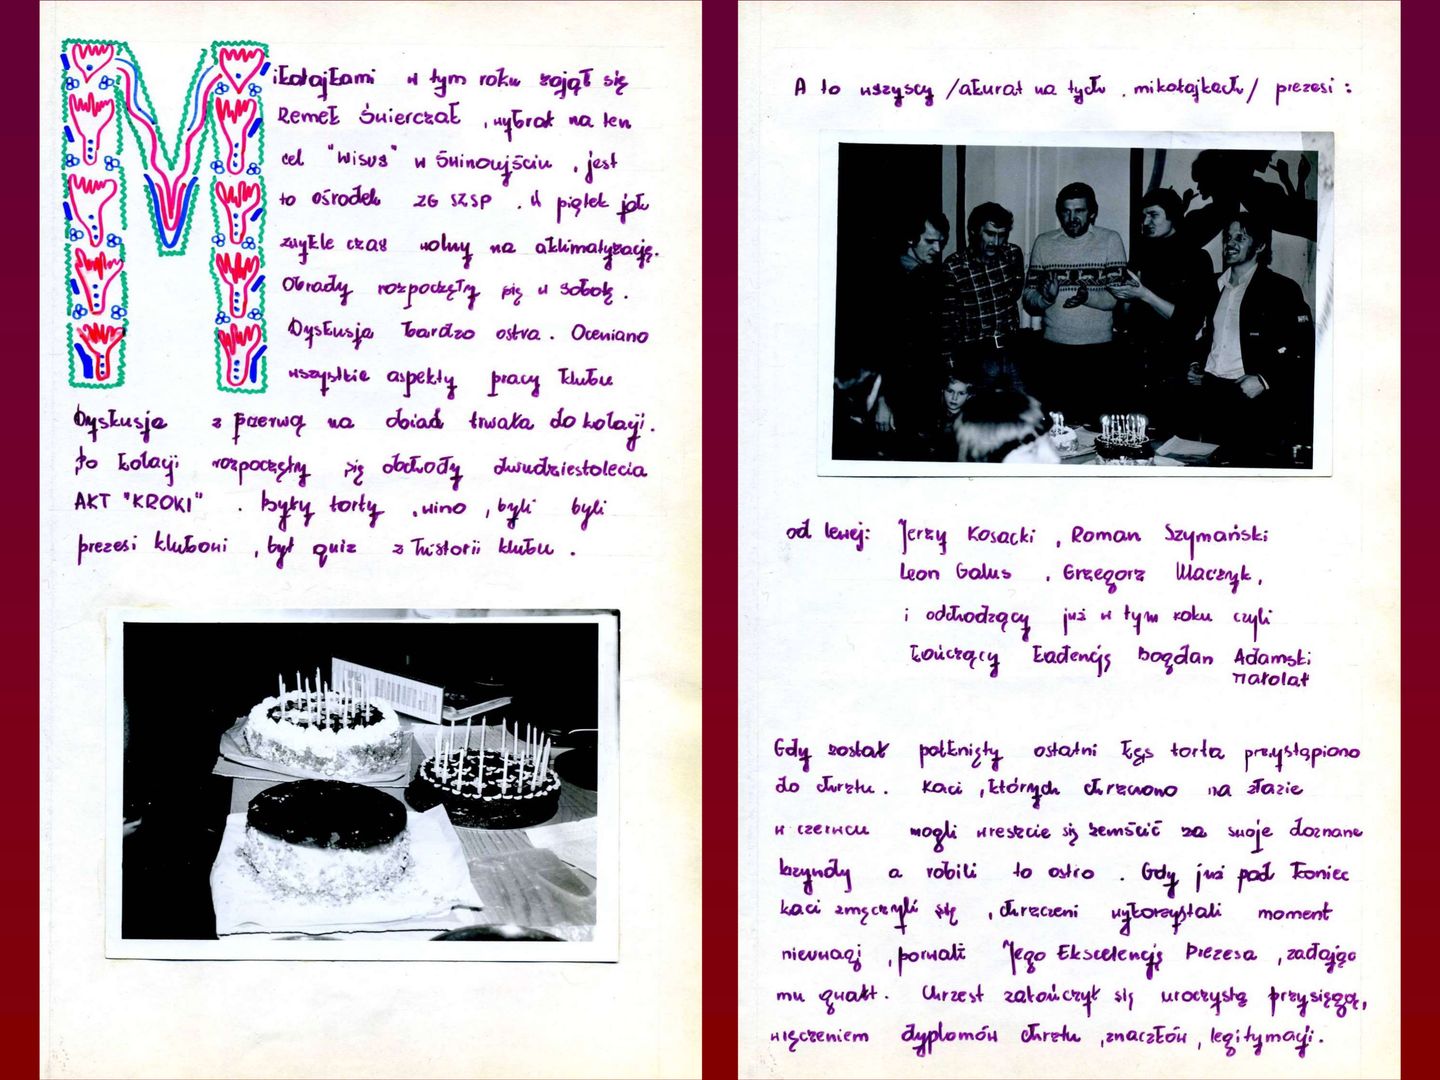 Mikołajkami w tym roku zajął się
Remek Świerczak, wybrał na ten
cel "WISUS" w Świnoujściu, jest
to ośrodek ZG SZSP. W piątek jak
zwykle czas wolny na aklimatyzację.
Obrady rozpoczęły się w sobotę.
Dyskusja bardzo ostra. Oceniano
wszystkie aspekty pracy klubu
Dyskusja z przerwą na obiad trwała do kolacji.
Po kolacji rozpoczęły się obchody dwudziestolecia
AKT "KROKI". Były torty, wino, byli byli
prezesi klubowi, był quiz z historii klubu.
A to wszyscy /akurat na tych mikołajkach/ prezesi:
od lewej: Jerzy Kosacki, Roman Szymański
Leon Galus, Grzegorz Waczyk,
i odchodzący już w tym roku czyli
kończący kadencję Bogdan Adamski
Małolat
Gdy został połknięty ostatni kęs torta przystąpiono
do chrztu. Kaci, których chrzczono na zlazie
w czerwcu mogli wreszcie się zemścić za swoje doznane
krzywdy a robili to ostro. Gdy już pod koniec
kaci zmęczyli się, chrzczeni wykorzystali moment
nieuwagi, porwali Jego Ekscelencję Prezesa, zadając
mu gwałt. Chrzest zakończył się uroczystą przysięgą,
wręczeniem dyplomów chrztu, znaczków, legitymacji.